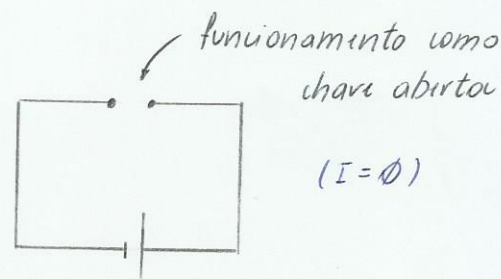 funcionamento como
chave aberta
(I = Ø)